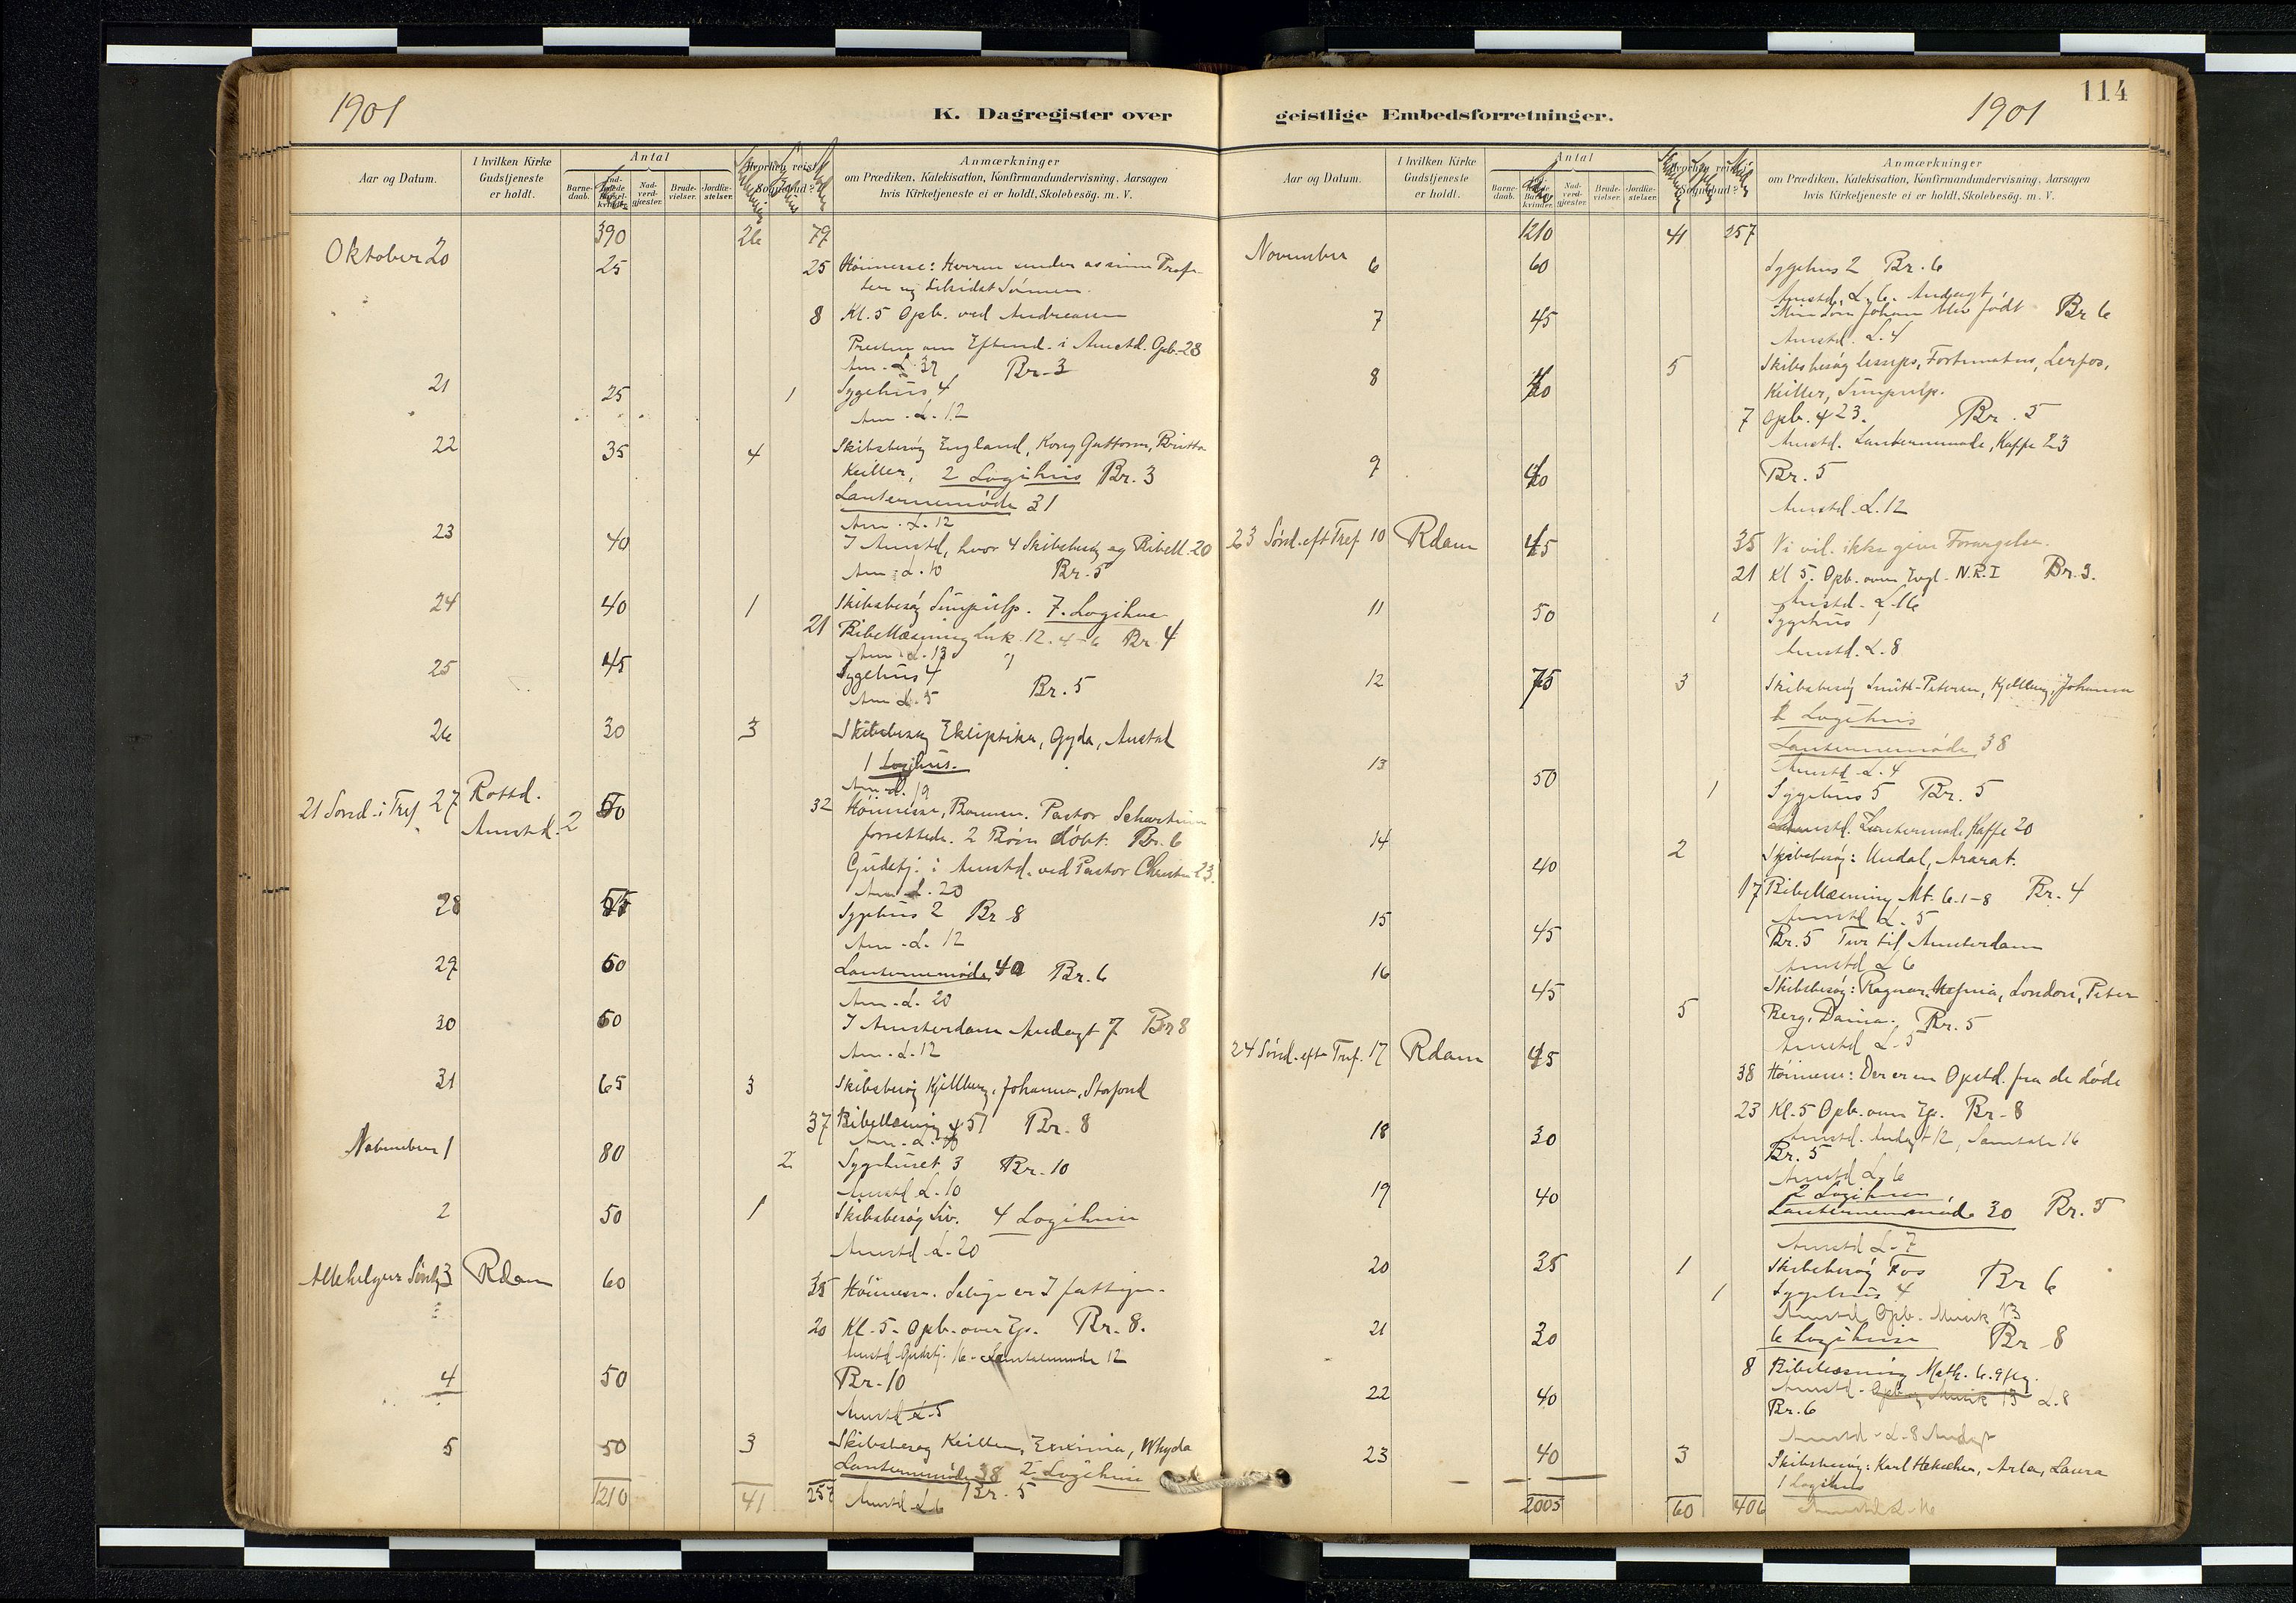 1901
K. Dagregister over
Aar og Datum.
I hvilken Kirke Gudstjeneste er holdt.
Antal
Barne-daab.
Nad-verd-gjæster.
Brude-vielser.
Jordfæ-stelser.
Anmærkninger
om Prædiken, Katekisation, Konfirmandundervisning, Aarsagen
hvis Kirketjeneste ei er holdt, Skolebesög. m. V.
390 26 79
Oktober 20 25 25 Høimesse: Herren sender
8 Kl. 5 Opb. ved Andreassen
i Amstd. Opb. 28
Am. L. 37 Br. 3
21 25 1 Sygehus 4
Am. L. 12
22 35 4 Skibsbesøg England, Kong Guttorm, Britta
Keiller, 2 Logihus Br. 3
Lanternemøde 31
Am. L. 12
23 40 I Amstd, hvor 4 Skibsbesøg og Bibell. 20
Am. L. 10 Br. 5
24 40 1 Skibsbesøg 7 Logihuse
21 Bibellæsning Luk. 12. 4-6 Br. 4
Am. L. 13
25 45 Sygehus 4
Am. L. 5 Br. 5
26 30 3 Skibsbesøg Ekliptika, Gyda, Austad
1 Logihus.
Am. L. 19
21 Sønd. i Tref 27 Rottd. 50 32 Høimesse, Pastor
Amstd. 2 forrettede. 2 Børn døbt. Br. 6
Gudstj. i Amstd. ved Pastor 23.
Am. L. 20
28 55 Sygehus 2 Br 8
Am. L. 12
29 60 Lanternemøde 40 Br. 6
Am. L. 20
30 60 I Amsterdam Andagt 7 Br 8
Am. L. 12
31 65 3 Skibsbesøg Kjellberg, Johanna, Storfond
37 Bibellæsning 51 Br. 8
November 1 80 2 Sygehuset 3 Br. 10
Amstd L. 10
2 50 1 Skibsbesøg Siv. 4 Logihuse
Amstd L. 20
Allehelgens Sønd. 3 Rdam 60 35 Høimesse. Salige er I fattige.
20 Kl. 5. Opb. over Ep. Br. 8.
Amstd Gudstj. 16. Samtalemøde 12
4 50 Br. 10
Amstd L. 5
5 50 3 Skibsbesøg Keiller, Euxinia, Whyda
Lanternemøde 38 2 Logihuse
Br. 5
1210 41 257 Amstd L 6
114
geistlige Embedsforretninger.
1901
Aar og Datum.
I hvilken Kirke Gudstjeneste er holdt.
Antal
Barne-daab.
Nad-verd-gjæster.
Brude-vielser.
Jordfæ-stelser.
Anmærkninger
om Prædiken, Katekisation, Konfirmandundervisning, Aarsagen
hvis Kirketjeneste ei er holdt, Skolebesög. m. V.
1210 41 257
November 6 60 Sygehus 2 Br. 6
Amstd. L. 6. Andagt.
7 45 Min Søn Johan blev født Br 6
Amstd. L. 4
8 5 Skibsbesøg Fortunatus, Lerfos,
Keiller,
7 Opb. 4 23. Br. 5
Amstd. Lanternemøde, Kaffe 23
9 40 Br. 5
Amstd. L. 12
23 Sønd. eft Tref. 10 Rdam 45 35 Vi vil ikke give Forargelse.
21 Kl 5. Opb. over Evgl. N.R.I Br. 3.
Amstd. L. 16
11 50 1 Sygehus 1
Amstd. L. 8
12 75 3 Skibsbesøg Smith-Petersen, Kjellberg, Johanna
2 Logihus
Lanternemøde 38
Amstd. L. 4
13 50 1 Sygehus 5 Br. 5
Amstd. Lanternemøde Kaffe 20
14 40 2 Skibsbesøg: Undal, Ararat.
17 Bibellæsning Mt. 6. 1-8 Br. 4
Amstd L. 5
15 45 Br. 5 Tur til Amsterdam
Amstd L 6
16 45 5 Skibsbesøg: Ragnar, London, Peter
Berg, Br. 5
Amstd L. 5
24 Sønd. eft Tref. 17 Rdam 45 38 Høimesse: Der er en Opstd. fra de døde
23 Kl. 5 Opb. over Ep. Br. 8
Amstd. Andagt 12, Samtale 16
18 30 Br. 5
Amstd L. 6
19 40 2 Logihuse
Lanternemøde 30 Br. 5
Amstd L. 7
20 35 1 Skibsbesøg Fos Br 6
1 Sygehus 4
Amstd Opb. Musik 13
21 30 6 Logihuse Br. 8
8 Bibellæsning Math. 6. 9 flg.
Amstd. Opb. og Musik 13 L. 8
22 40 Br. 6
Amstd. L. 8 Andagt
23 40 3 Skibsbesøg: Karl Arla, Laura
1 Logihus
2005 60 406 Amstd L. 16